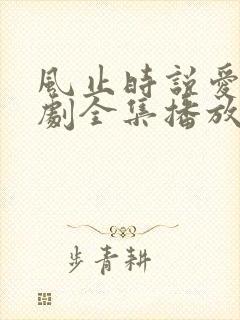 風止時說愛
劇全集播放
步青耕